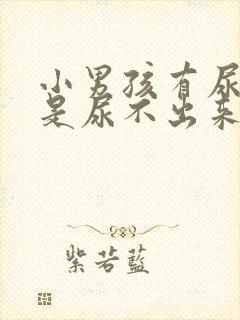 小男孩有尿
是尿不出来
紫若蓝